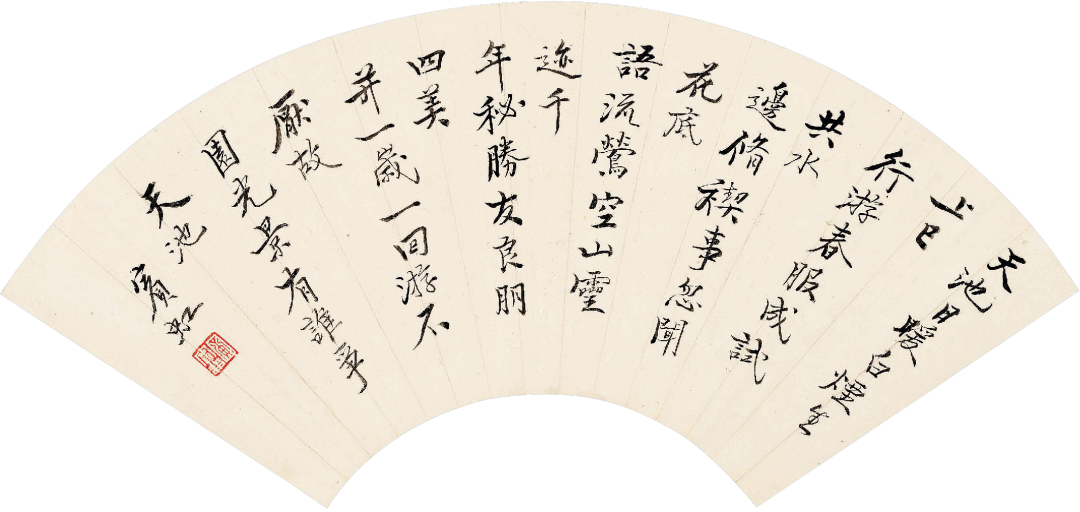 天池日暖白煙生
上巳
行游春服成試
共水
邊脩禊事忽聞
花底
語流鶯空山靈
迹千
年秘勝友良朋
四美
并一歲一回游不
厭故
園光景有誰爭
天池 賓虹